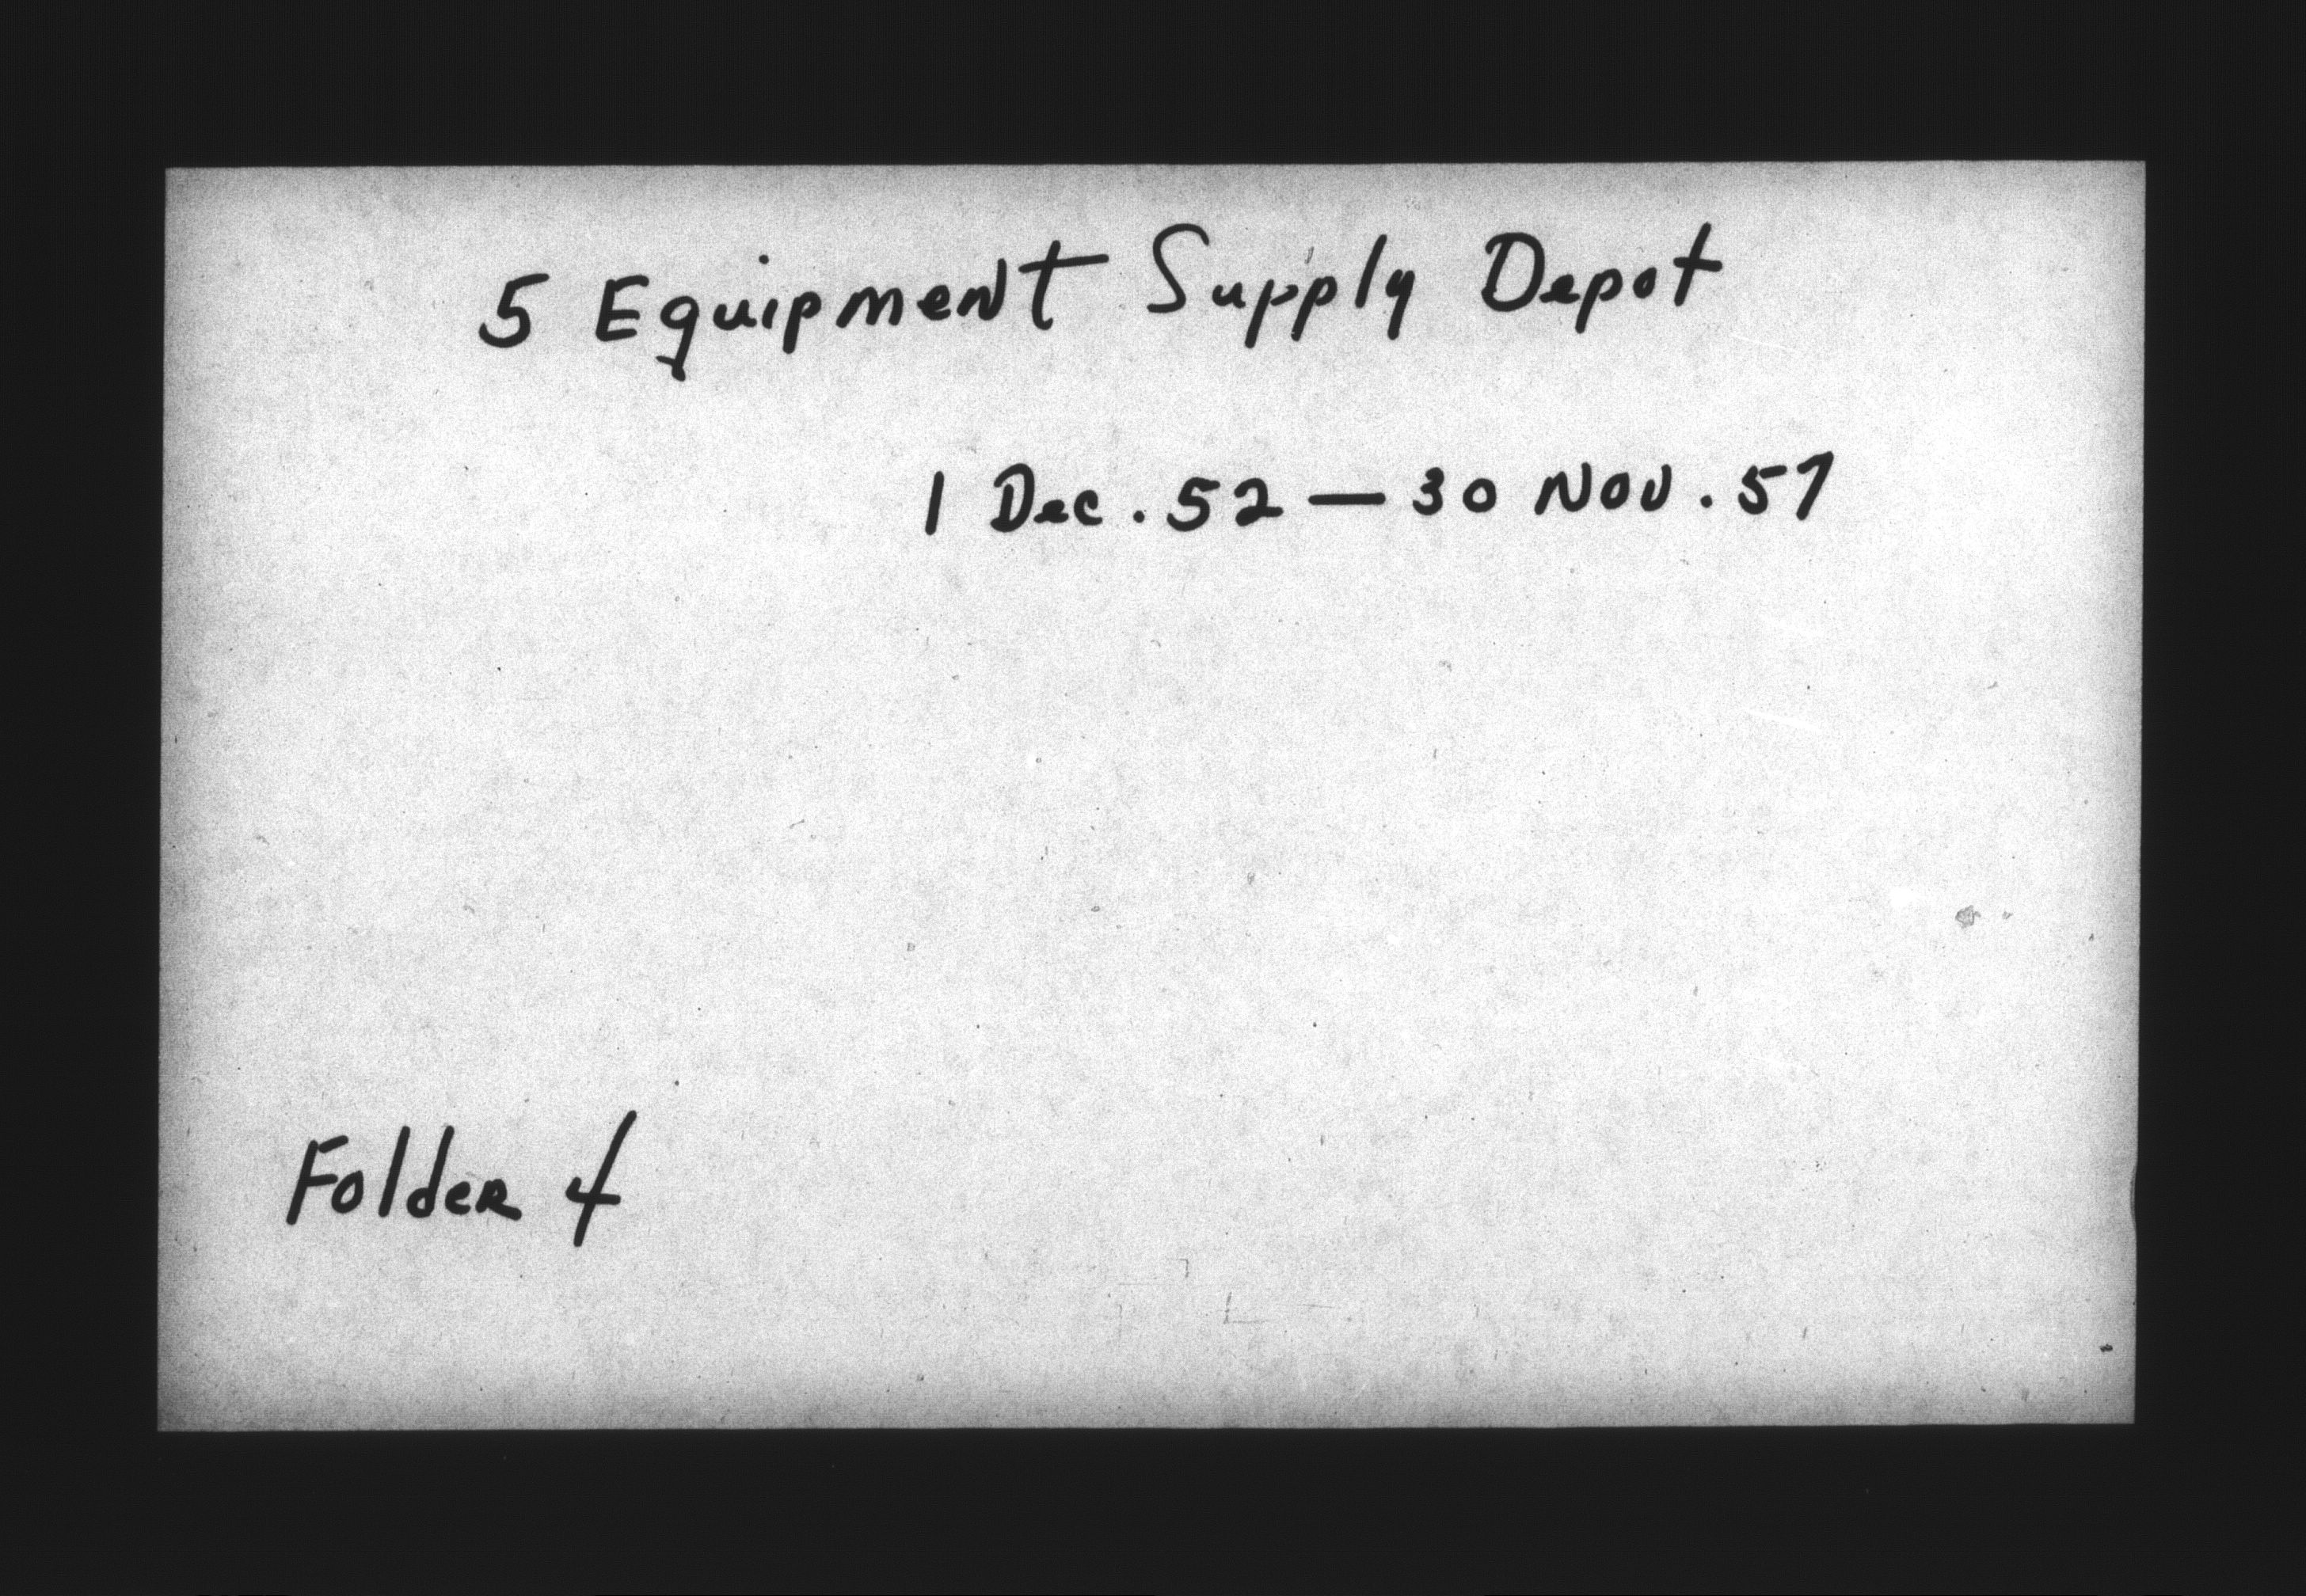 5 Equipment Supply Depot
1 Dec. 52 — 30 Nov. 57
Folder 4